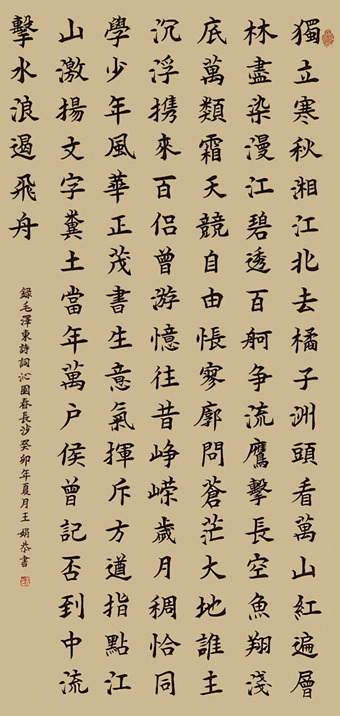 獨立寒秋湘江北去橘子洲頭看萬山紅遍層
林盡染漫江碧透百舸争流鷹擊長空魚翔淺
底萬類霜天競自由悵寥廓問蒼茫大地誰主
沉浮携來百侣曾游憶往昔崢嶸歲月稠恰同
學少年風華正茂書生意氣揮斥方遒指點江
山激揚文字糞土當年萬户侯曾記否到中流
擊水浪遏飛舟
録毛澤東詩詞沁園春長沙癸卯年夏月王娟恭書